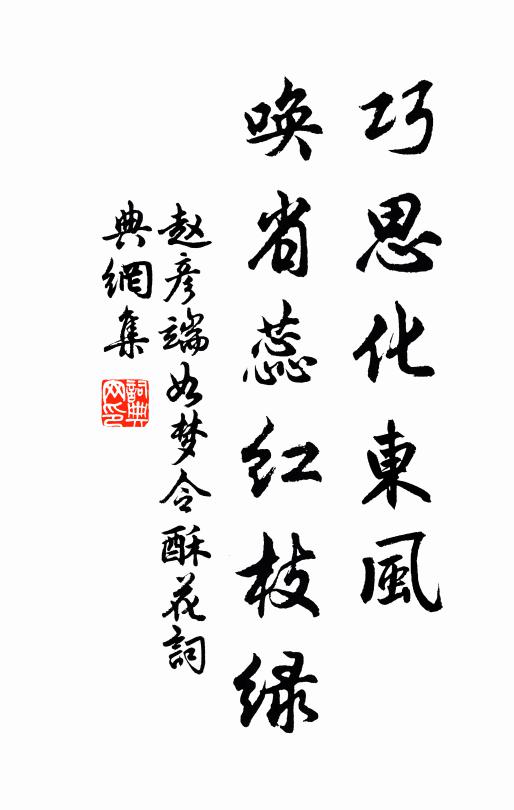 巧思化東風
喚省蕊红枝緑
赵彦端如梦令酥花詞
典網集
詞典
网印